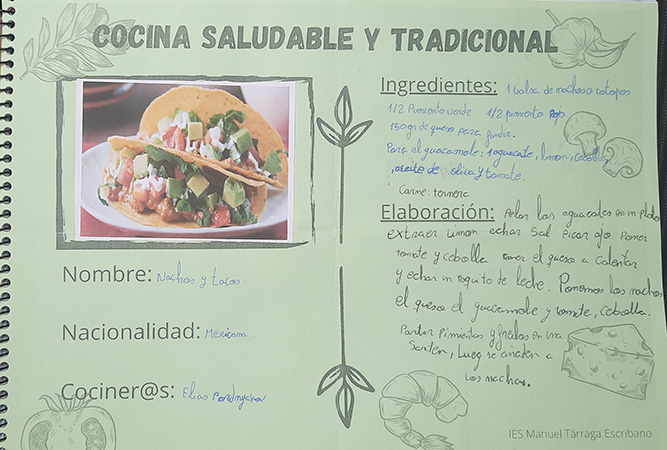 COCINA SALUDABLE Y TRADICIONAL
Nombre: Nachos y tacos
Nacionalidad: Mexicana.
Cociner@s: Elias
Ingredientes: 1 bolsa de nachos o totopos
1/2 Pimiento verde 1/2 pimiento Rojo
150 gr de queso para fundir.
Para el guacamole: 1 aguacate, limon, cebolla
, aceite de oliva y tomate.
Carne: ternera
Elaboración: Pelar los aguacates en un plato
extraer limon echar sal picar ajo Poner
tomate y cebolla el queso a calentar
y echar un poquito de leche. Ponemos los nachos
el queso el guacamole y tomate, cebolla.
Partir Pimientos y freirlos en una
Sarten, Luego se añaden a
los nachos.
IES Manuel Tárraga Escribano